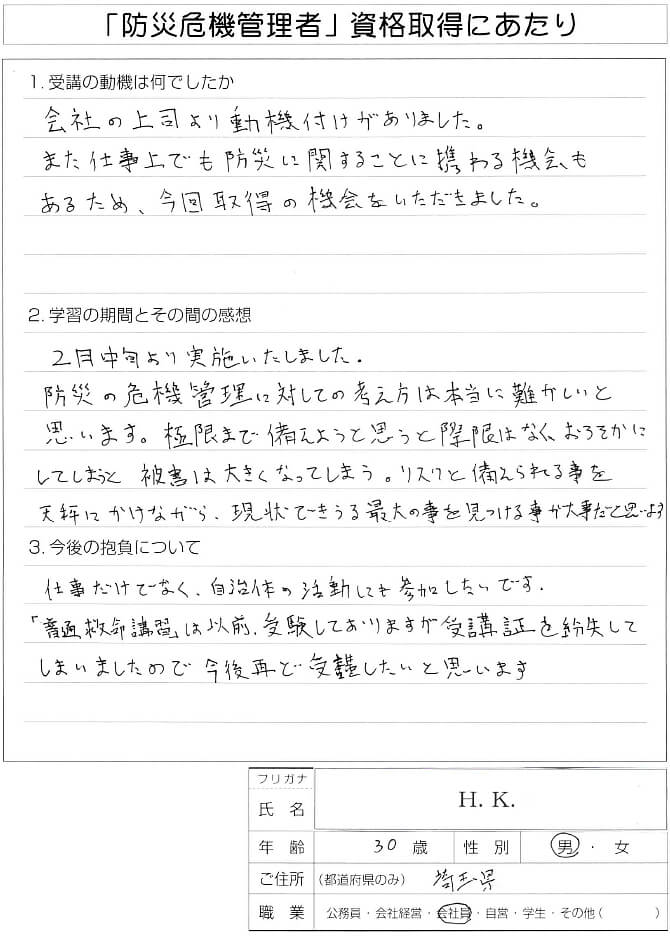 「防災危機管理者」資格取得にあたり
1. 受講の動機は何でしたか
会社の上司より動機付けがありました。
また仕事上でも防災に関することに携わる機会も
あるため、今回取得の機会をいただきました。
2. 学習の期間とその間の感想
2月中旬より実施いたしました.
防災の危機管理に対しての考え方は本当に難かしいと
思います。極限まで備えようと思うと際限はなく、おろそかに
してしまうと 被害は大きくなってしまう。リスクと備えられる事を
天秤にかけながら、現状できうる最大の事を見つける事が大事だと思います
3. 今後の抱負について
仕事だけでなく、自治体の活動しても参加したいです.
「普通救命講習」は以前、受験しておりますが受講証を紛失して
しまいましたので 今後再ど受講したいと思います
フリガナ
氏名 H. K.
年齢 30 歳 性別 男・女
ご住所 (都道府県のみ) 埼玉県
職業 公務員・会社経営・会社員・自営・学生・その他( )